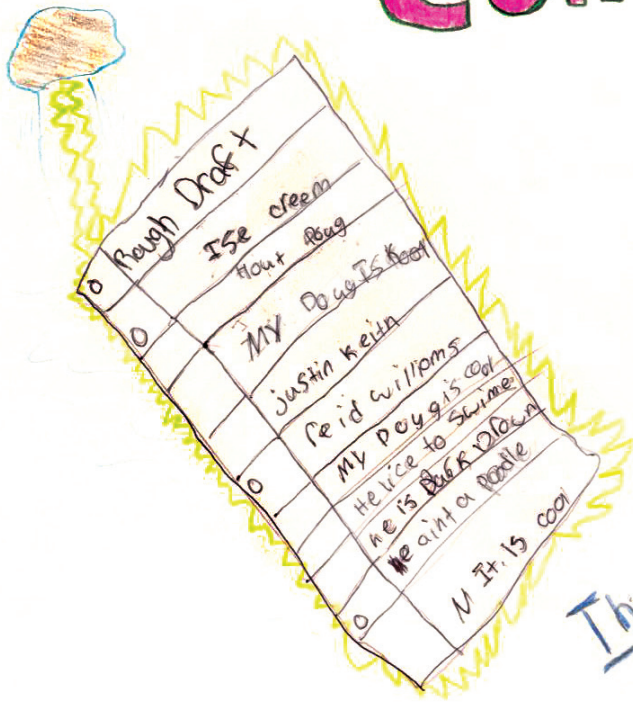 Rough Draft
Ise creem
Hout Doug
My Doug Is Kool
justin Keith
reid williams
My Doug is cool
He lice to swime
he is Dark Brown
he aint a Poodle
M It. is cool